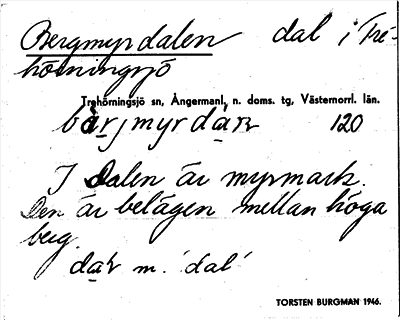 Bergmyrdalen dal i Tre-
hörningsjö
Trehörningsjö sn, Ångermanl. n. doms. tg, Västernorrl. län.
120
I Dalen är myrmark.
Den är belägen mellan höga
berg.
m. 'dal'
TORSTEN BURGMAN 1946.